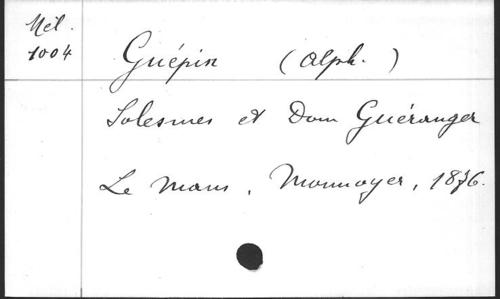 Mél.
1004
Guépin (Alph. )
Solesmes et Dom Guéranger
Le Mans, Monnoyer, 1876.